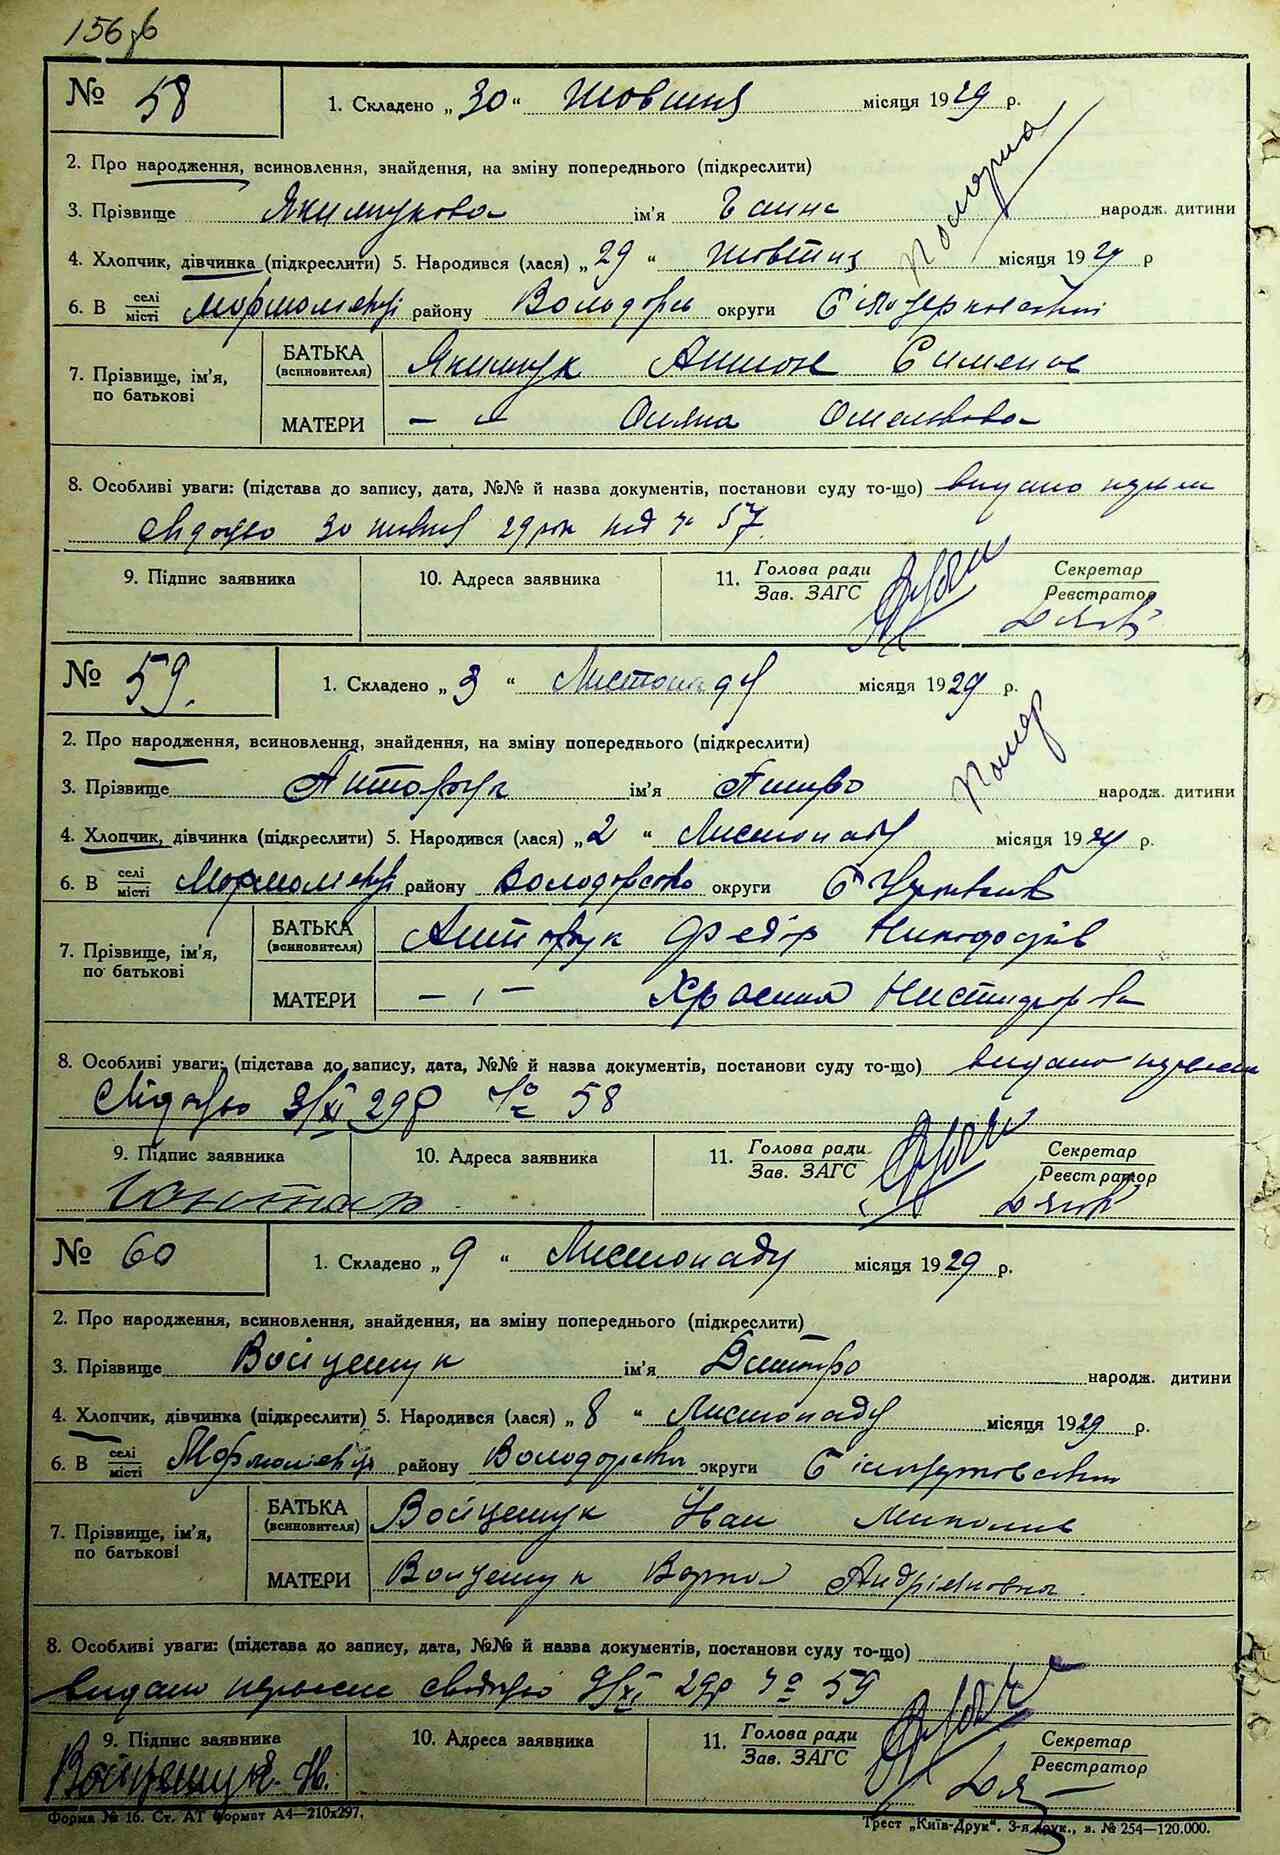 № 58
1. Складено „ 30 “ Жовтня місяця 1929 р.
2. Про народження, всиновлення, знайдення, на зміну попереднього (підкреслити)
3. Прізвище Якимчукова ім'я Ганна народж. дитини
Померла
4. Хлопчик, дівчинка (підкреслити) 5. Народився (лася) „ 29 “ Жовтня місяця 1929 р
6. В селі/місті району Володарсь округи Білоцерковської
7. Прізвище, ім'я, по батькові
БАТЬКА (всиновителя) Якимчук Антон Сименов
МАТЕРИ — „ — Омелькова
8. Особливі уваги: (підстава до запису, дата, №№ й назва документів, постанови суду то-що) видано
30 жовтня 29 рок під № 57.
9. Підпис заявника 10. Адреса заявника 11. Голова ради / Зав. ЗАГС Секретар / Реєстратор
№ 59.
1. Складено „ 3 “ Листопаду місяця 1929 р.
2. Про народження, всиновлення, знайдення, на зміну попереднього (підкреслити)
3. Прізвище ім'я народж. дитини
Помер
4. Хлопчик, дівчинка (підкреслити) 5. Народився (лася) „ 2 “ Листопаду місяця 1929 р.
6. В селі/місті району Володарсько округи
7. Прізвище, ім'я, по батькові
БАТЬКА (всиновителя) Федір
МАТЕРИ — „ —
8. Особливі уваги: (підстава до запису, дата, №№ й назва документів, постанови суду то-що) видано
3/XI 29р № 58
9. Підпис заявника 10. Адреса заявника 11. Голова ради / Зав. ЗАГС Секретар / Реєстратор
№ 60
1. Складено „ 9 “ Листопаду місяця 1929 р.
2. Про народження, всиновлення, знайдення, на зміну попереднього (підкреслити)
3. Прізвище Войцешук ім'я Дмитро народж. дитини
4. Хлопчик, дівчинка (підкреслити) 5. Народився (лася) „ 8 “ Листопаду місяця 1929 р.
6. В селі/місті району округи
7. Прізвище, ім'я, по батькові
БАТЬКА (всиновителя) Войцешук Іван Миколів
МАТЕРИ Войцешук Андріяновна
8. Особливі уваги: (підстава до запису, дата, №№ й назва документів, постанови суду то-що)
видано 9/XI 29р № 59
9. Підпис заявника 10. Адреса заявника 11. Голова ради / Зав. ЗАГС Секретар / Реєстратор
Войцешук
Форма № 16. Ст. АТ формат А4—210х297.
Трест „Київ-Друк“. 3-я друк., з. № 254—120.000.